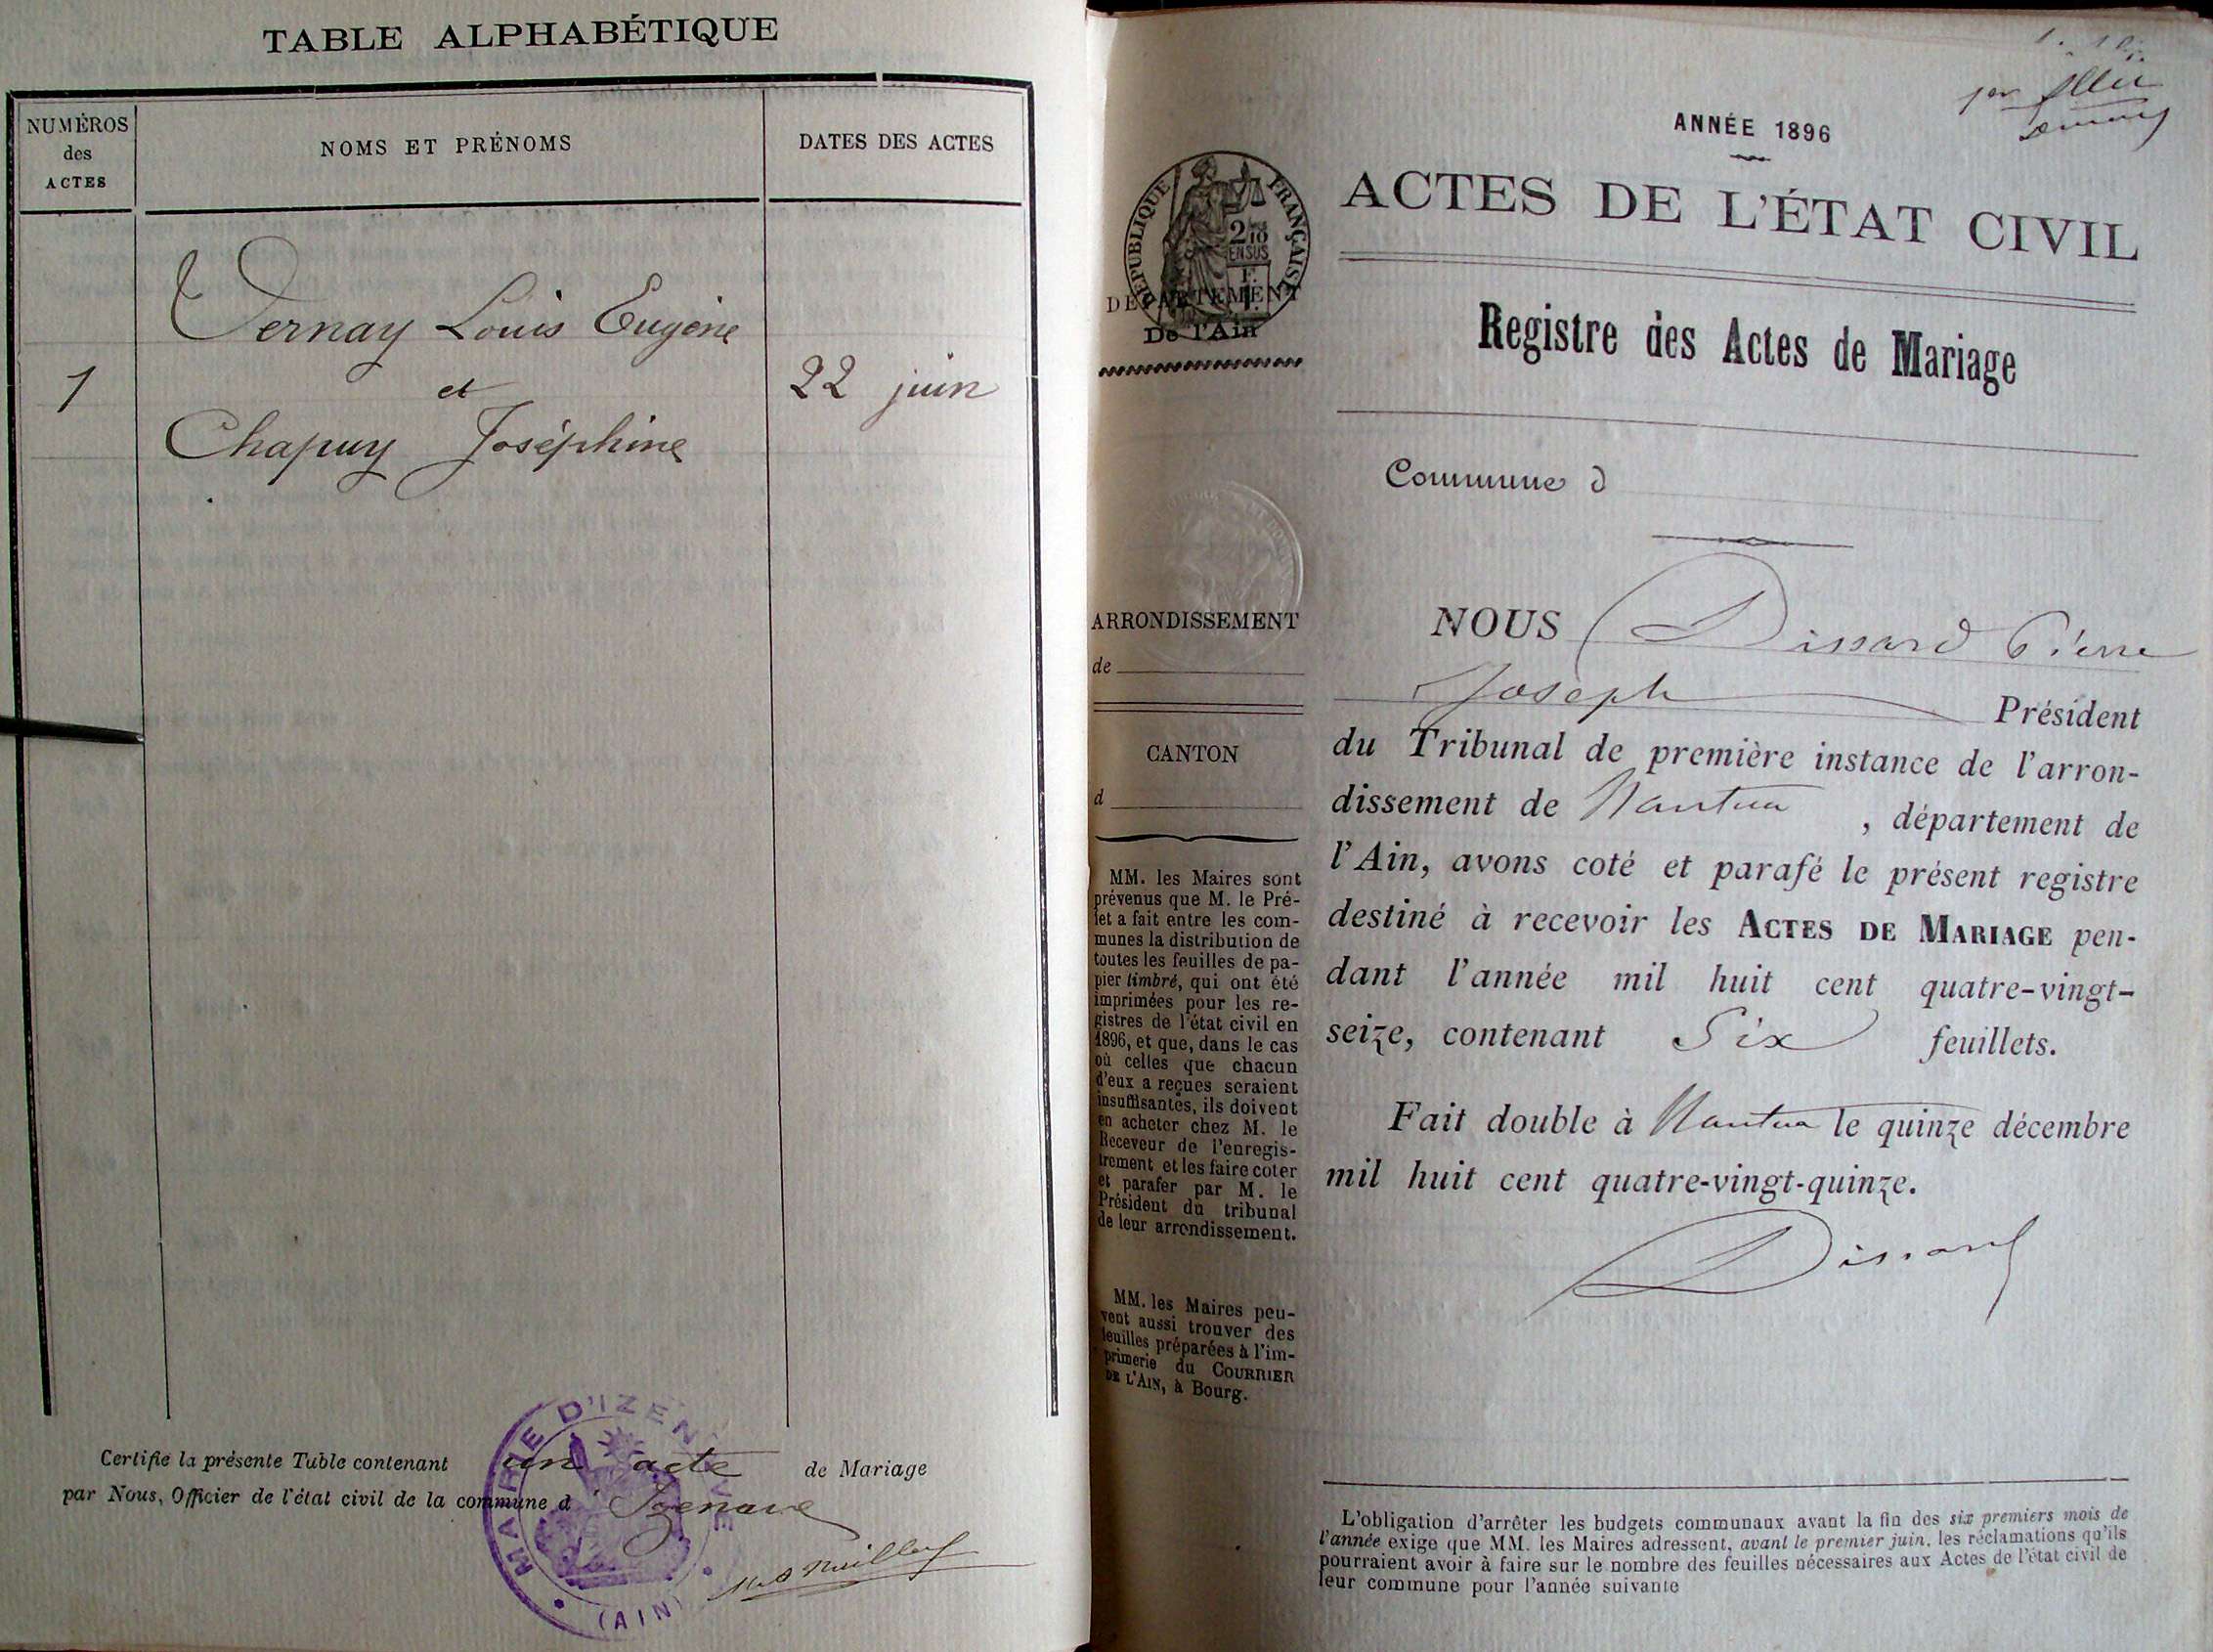 TABLE ALPHABÉTIQUE
NUMÉROS
des
ACTES
NOMS ET PRÉNOMS
DATES DES ACTES
Vernay Louis Eugène
1
et
22 juin
Chapuy Joséphine
Certifie la présente Table contenant un acte de Mariage
par Nous, Officier de l'état civil de la commune d'Izenave
MAIRIE D'IZENAVE
(AIN)
ANNÉE 1896
ACTES DE L'ÉTAT CIVIL
RÉPUBLIQUE FRANÇAISE
2/10
EN SUS
DÉPARTEMENT
De l'Ain
Registre des Actes de Mariage
Commune d
ARRONDISSEMENT
de
CANTON
d
MM. les Maires sont
prévenus que M. le Pré-
fet a fait entre les com-
munes la distribution de
toutes les feuilles de pa-
pier timbré, qui ont été
imprimées pour les re-
gistres de l'état civil en
1896, et que, dans le cas
où celles que chacun
d'eux a reçues seraient
insuffisantes, ils doivent
en acheter chez M. le
Receveur de l'enregis-
trement et les faire coter
et parafer par M. le
Président du tribunal
de leur arrondissement.
MM. les Maires peu-
vent aussi trouver des
feuilles préparées à l'im-
primerie du COURRIER
DE L'AIN, à Bourg.
NOUS Dissard Pierre
Joseph Président
du Tribunal de première instance de l'arron-
dissement de Nantua, département de
l'Ain, avons coté et parafé le présent registre
destiné à recevoir les ACTES DE MARIAGE pen-
dant l'année mil huit cent quatre-vingt-
seize, contenant Six feuillets.
Fait double à Nantua le quinze décembre
mil huit cent quatre-vingt-quinze.
Dissard
L'obligation d'arrêter les budgets communaux avant la fin des six premiers mois de
l'année exige que MM. les Maires adressent, avant le premier juin, les réclamations qu'ils
pourraient avoir à faire sur le nombre des feuilles nécessaires aux Actes de l'état civil de
leur commune pour l'année suivante